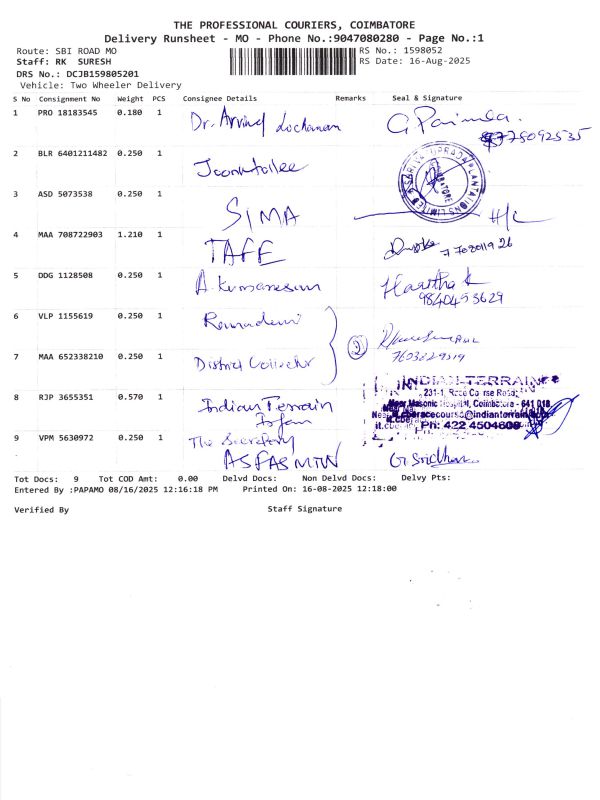 THE PROFESSIONAL COURIERS, COIMBATORE
Delivery Runsheet - MO - Phone No.:9047080280 - Page No.:1
Route: SBI ROAD MO
RS No.: 1598052
Staff: RK SURESH
RS Date: 16-Aug-2025
DRS No.: DCJB159805201
Vehicle: Two Wheeler Delivery
S No Consignment No Weight PCS Consignee Details Remarks Seal & Signature
1 PRO 18183545 0.180 1 Dr. Arvind
2 BLR 6401211482 0.250 1
3 ASD 5073538 0.250 1 SIMA H/C
4 MAA 708722903 1.210 1 TAFE
5 DDG 1128508 0.250 1 A. Kumaresan
9840453629
6 VLP 1155619 0.250 1
2
7 MAA 652338210 0.250 1 District Collector
8 RJP 3655351 0.570 1 Indian Terrain
INDIAN TERRAIN
231-1, Race Course Road,
Near Masonic Hospital, Coimbatore - 641 018.
Ph: 422 4504608
9 VPM 5630972 0.250 1 The Secretary
ASFASMTW G. Sridharan
Tot Docs: 9 Tot COD Amt: 0.00 Delvd Docs: Non Delvd Docs: Delvy Pts:
Entered By :PAPAMO 08/16/2025 12:16:18 PM Printed On: 16-08-2025 12:18:00
Verified By Staff Signature